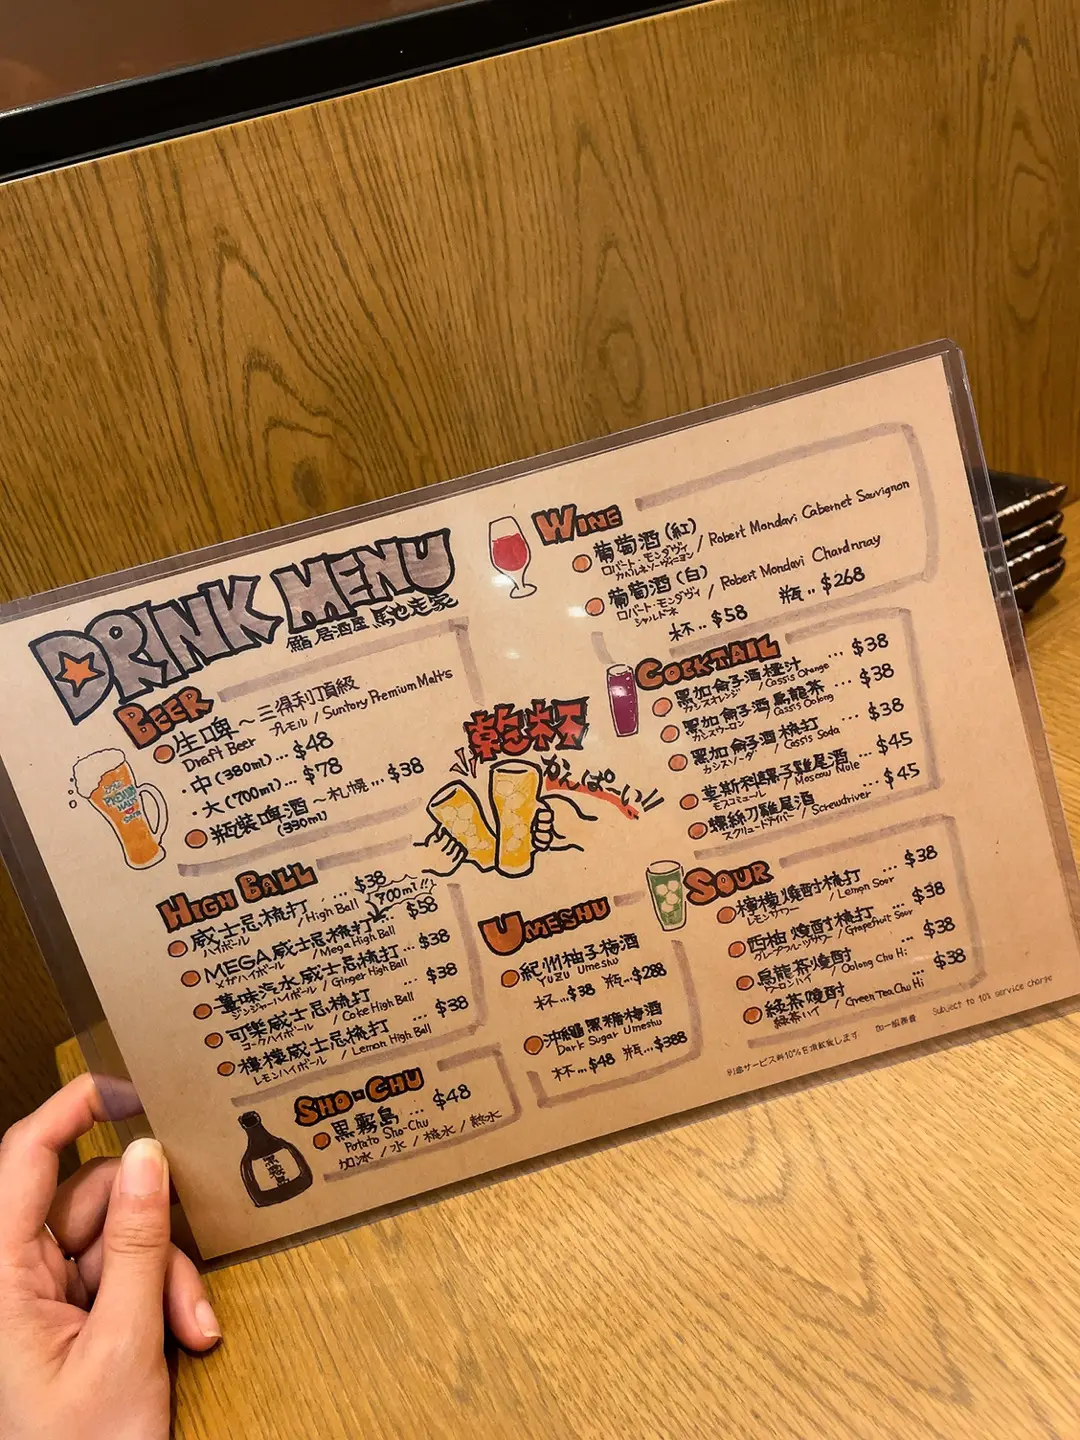 DRINK MENU
鮨 居酒屋 馳走家
BEER
生啤 ~三得利頂級
Draft Beer プレモル / Suntory Premium Malt's
・中(380ml)...$48
・大(700ml)...$78
瓶裝啤酒~札幌...$38
(330ml)
HIGH BALL
威士忌梳打 ... $38
ハイボール / High Ball
700ml!!
MEGA威士忌梳打... $58
メガハイボール / Mega High Ball
薑味汽水威士忌梳打... $38
ジンジャーハイボール / Ginger High Ball
可樂威士忌梳打 ... $38
コークハイボール / Coke High Ball
檸檬威士忌梳打 ... $38
レモンハイボール / Lemon High Ball
SHO-CHU
黒霧島 ... $48
Potato Sho-Chu
加冰 / 水 / 梳水 / 熱水
黒霧島
乾杯
かんぱーい!!
WINE
葡萄酒(紅) / Robert Mondavi Cabernet Sauvignon
ロバート・モンダヴィ
カベルネソーヴィニヨン
葡萄酒(白) / Robert Mondavi Chardnnay
ロバート・モンダヴィ
シャルドネ
杯..$58 瓶..$268
COCKTAIL
黑加侖子酒橙汁 ... $38
カシスオレンジ / Cassis Orange
黑加侖子酒烏龍茶 ... $38
カシスウーロン / Cassis Oolong
黑加侖子酒梳打 ... $38
カシスソーダ / Cassis Soda
莫斯科騾子雞尾酒 ... $45
モスコミュール / Moscow Mule
螺絲刀雞尾酒 ... $45
スクリュードライバー / Screwdriver
UMESHU
紀州柚子梅酒
YUZU Umeshu
杯...$38 瓶...$288
沖繩黑糖梅酒
Dark Sugar Umeshu
杯...$48 瓶...$388
SOUR
檸檬燒酎梳打 ... $38
レモンサワー / Lemon Sour
西柚燒酎梳打 ... $38
グレープフルーツサワー / Grapefruit Sour
烏龍茶燒酎 ... $38
ウーロンハイ / Oolong Chu Hi
綠茶燒酎 ... $38
緑茶ハイ / Green Tea Chu Hi
別途サービス料10%を頂戴致します 加一服務費 Subject to 10% service charge